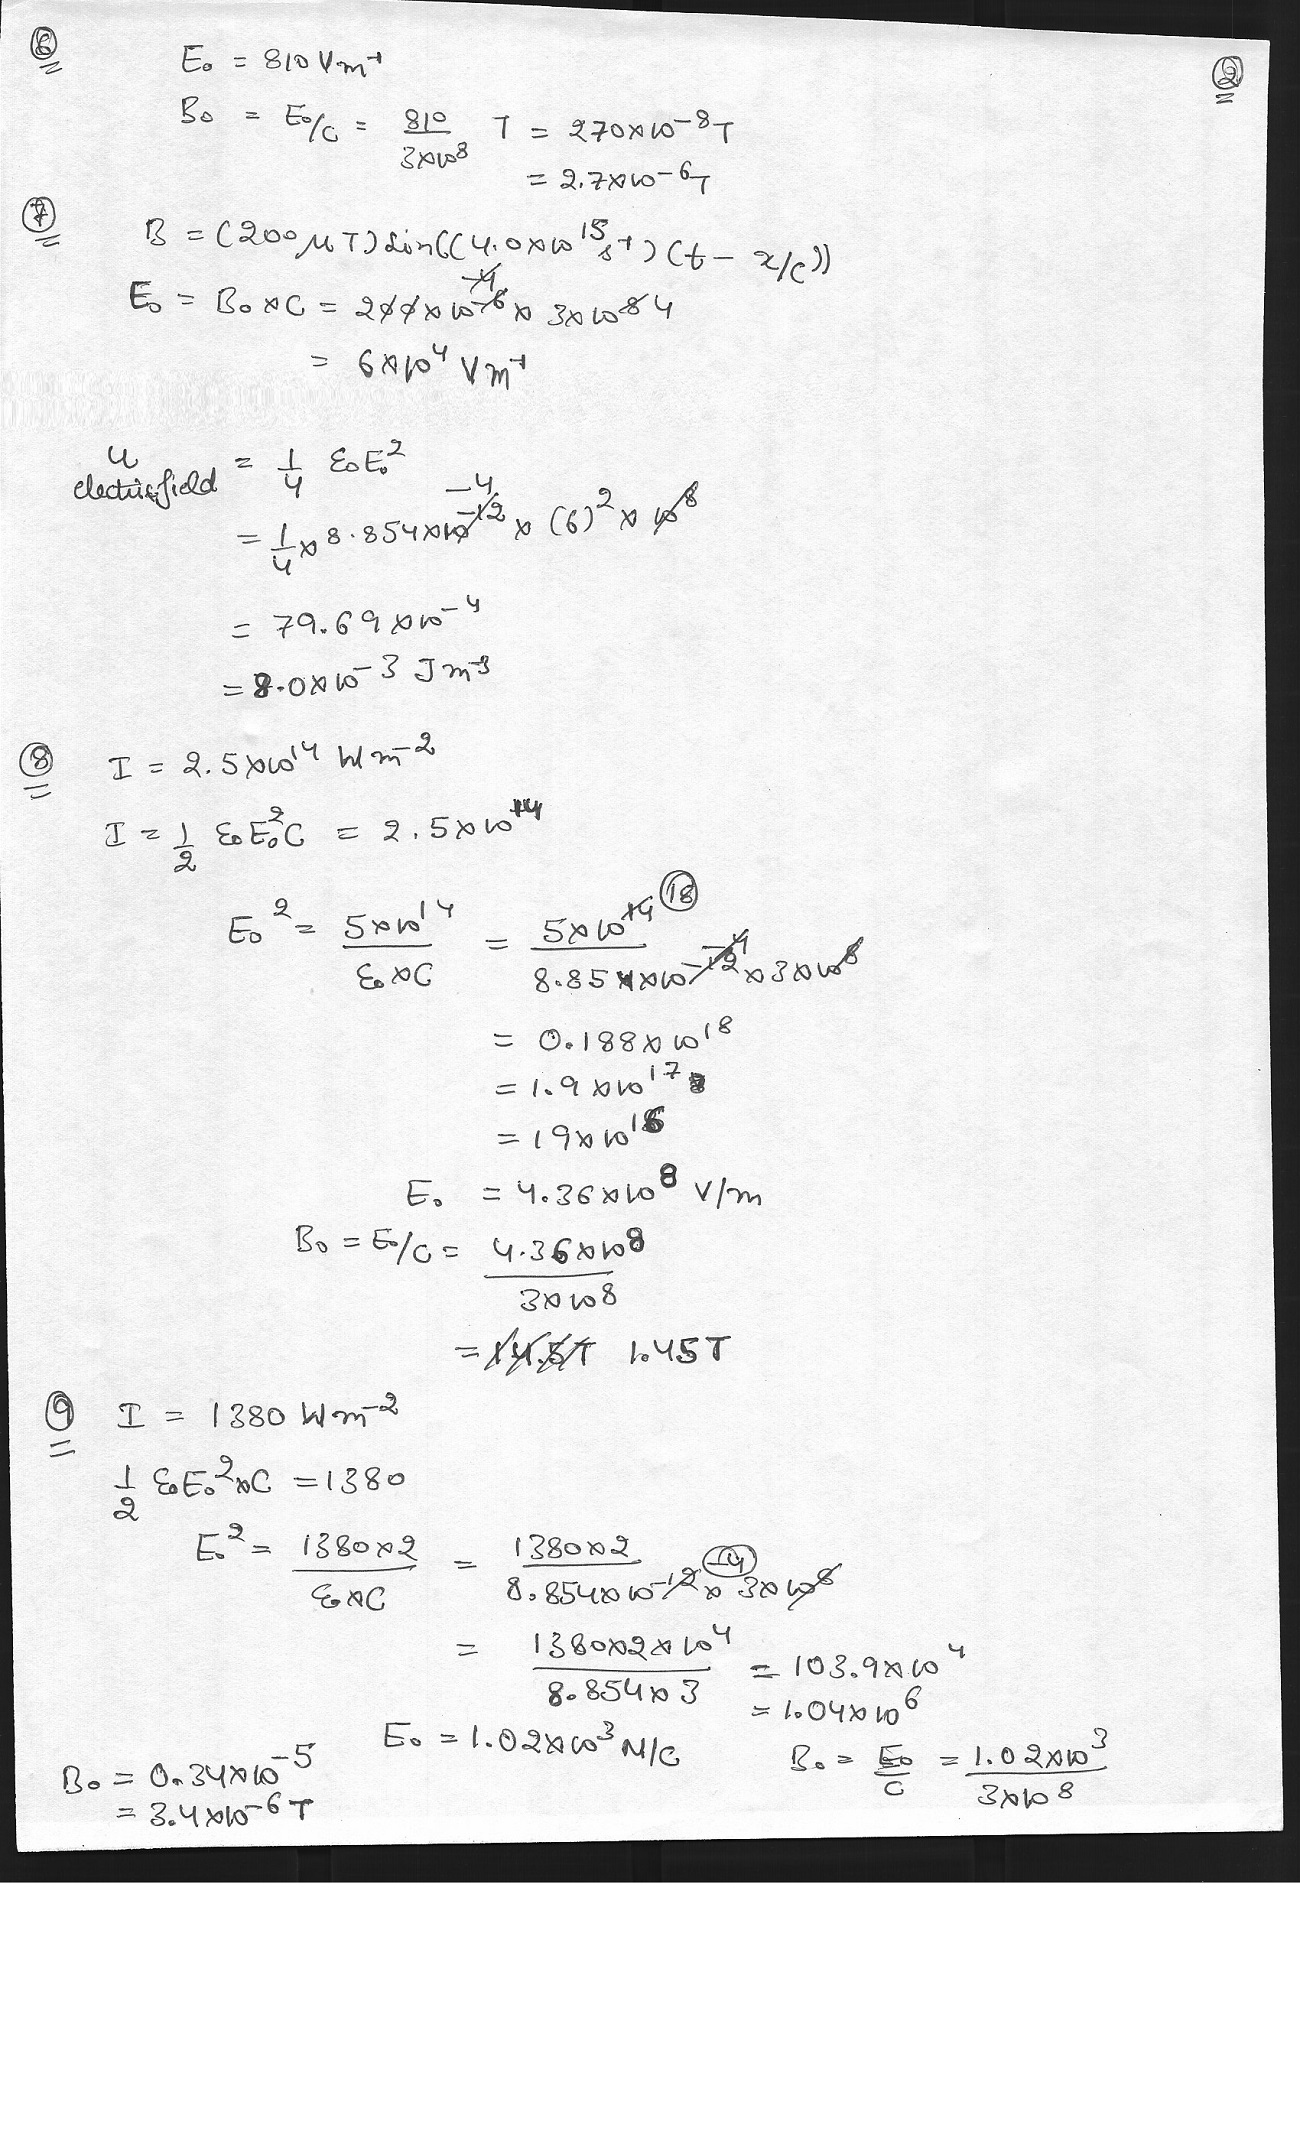 ⑥
②
E₀ = 810 Vm⁻¹
B₀ = E₀/C = 810/3×10⁸ T = 270×10⁻⁸ T
= 2.7×10⁻⁶ T
⑦
B = (200 μT) Sin((4.0×10¹⁵ s⁻¹)(t – x/c))
E₀ = B₀×C = 200×10⁻⁶ ⁻⁴ × 3×10⁸ 4
= 6×10⁴ Vm⁻¹
u electric field = 1/4 ε₀E₀²
= 1/4 × 8.854×10⁻¹² ⁻⁴ × (6)² × 10⁸
= 79.69×10⁻⁴
= 8.0×10⁻³ Jm⁻³
⑧ I = 2.5×10¹⁴ Wm⁻²
I = 1/2 ε₀E₀²C = 2.5×10¹⁴
E₀² = 5×10¹⁴/ε₀×C = 5×10¹⁴ ⑱/8.854×10⁻¹² ⁻⁴ × 3×10⁸
= 0.188×10¹⁸
= 1.9×10¹⁷
= 19×10¹⁶
E₀ = 4.36×10⁸ V/m
B₀ = E₀/C = 4.36×10⁸/3×10⁸
= 14.5T 1.45T
⑨ I = 1380 Wm⁻²
1/2 ε₀E₀²×C = 1380
E₀² = 1380×2/ε₀×C = 1380×2/8.854×10⁻¹² ⁻⁴ × 3×10⁸
= 1380×2×10⁴/8.854×3 = 103.9×10⁴
= 1.04×10⁶
E₀ = 1.02×10³ N/C
B₀ = E₀/C = 1.02×10³/3×10⁸
B₀ = 0.34×10⁻⁵
= 3.4×10⁻⁶ T